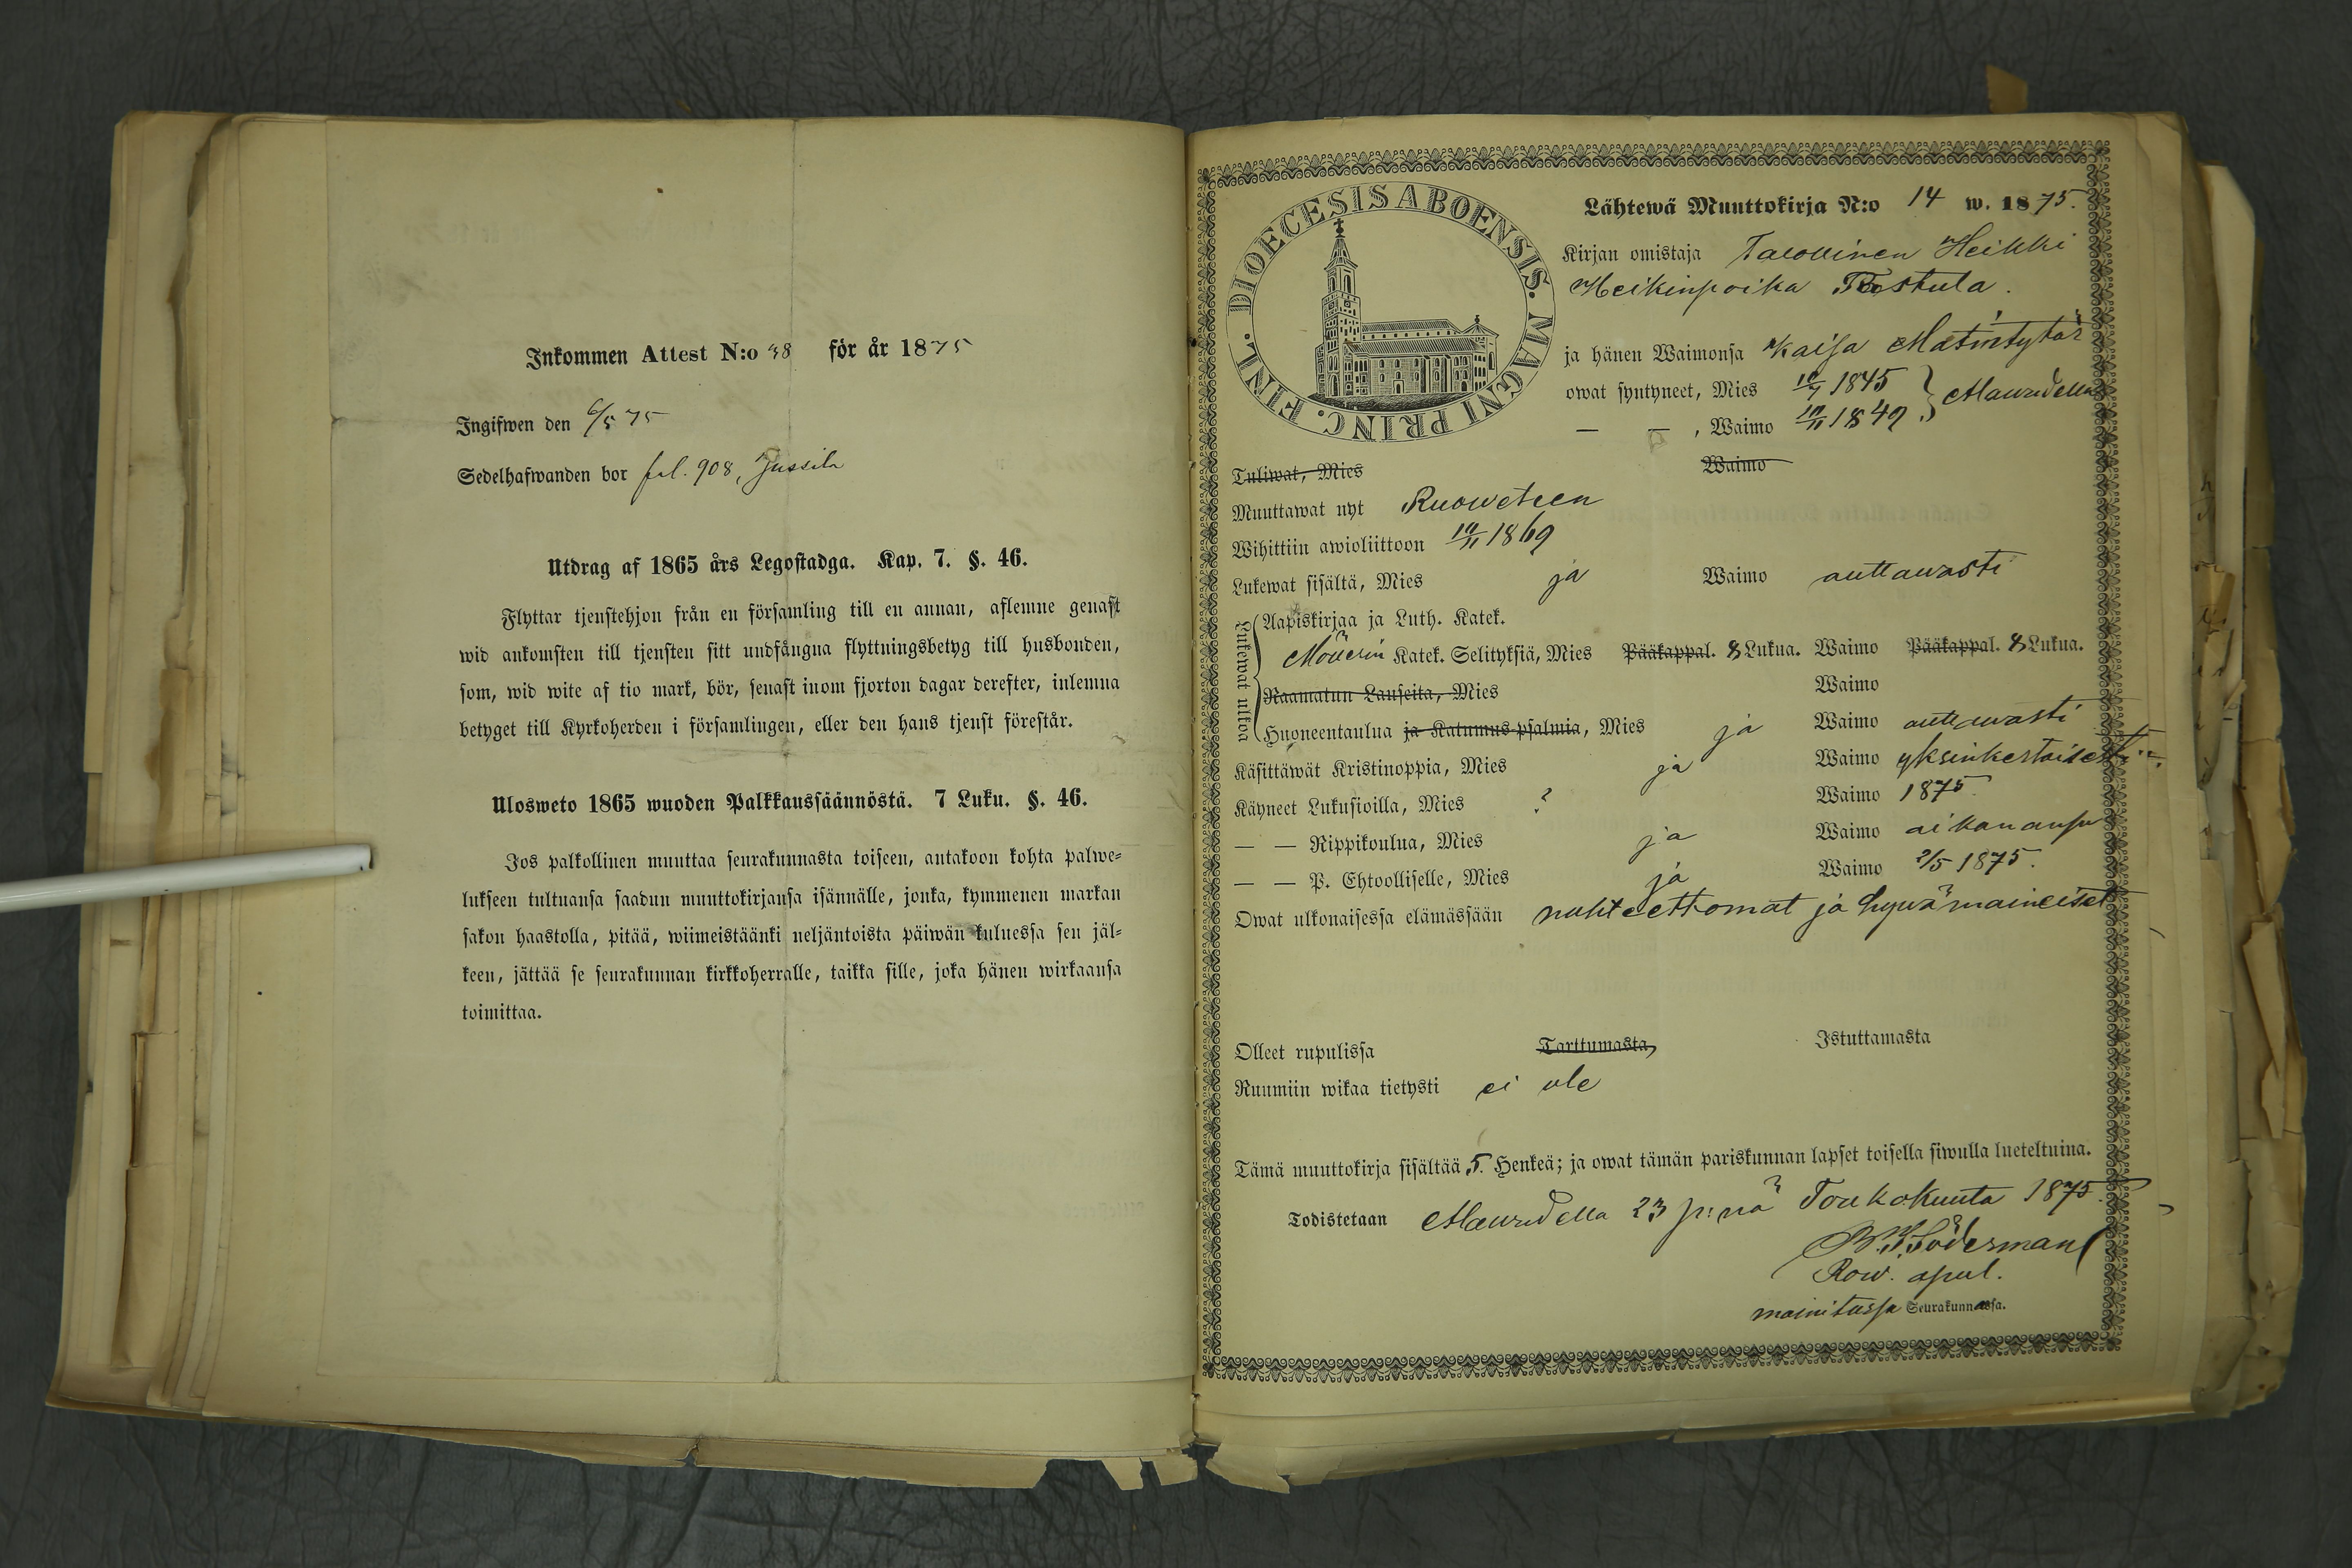 Inkommen Attest N:o 38 för år 1875
Ingifwen den 6/5 75
Sedelhafwanden bor fol. 908, Jussila
Utdrag af 1865 års Legostadga. Kap. 7. §. 46.
Flyttar tjenstehjon från en församling till en annan, aflemne genast
wid ankomsten till tjensten sitt undfångna flyttningsbetyg till husbonden,
som, wid wite af tio mark, bör, senast inom fjorton dagar derefter, inlemna
betyget till Kyrkoherden i församlingen, eller den hans tjenst förestår.
Ulosweto 1865 wuoden Palkkaussäännöstä. 7 Luku. §. 46.
Jos palkollinen muuttaa seurakunnasta toiseen, antakoon kohta palwe-
lukseen tultuansa saadun muuttokirjansa isännälle, jonka, kymmenen markan
sakon haastolla, pitää, wiimeistäänki neljäntoista päiwän kuluessa sen jäl-
keen, jättää se seurakunnan kirkkoherralle, taikka sille, joka hänen wirkaansa
toimittaa.
DIOECESIS ABOENSIS. MAGNI PRINC. FINL.
Lähtewä Muuttokirja N:o 14 w. 1875.
Kirjan omistaja Talollinen Heikki
Heikinpoika
ja hänen Waimonsa Kaisa Matintytär
owat syntyneet, Mies 1845
— — , Waimo 1849
Tuliwat, Mies Waimo
Muuttawat nyt Ruoweteen
Wihittiin awioliittoon 1869
Lukewat sisältä, Mies ja Waimo auttawasti
Lukewat ulkoa
Aapiskirjaa ja Luth. Katek.
Katek. Selityksiä, Mies Pääkappal. 8 Lukua. Waimo Pääkappal. 8 Lukua.
Raamatun Lauseita, Mies Waimo
Huoneentaulua ja Katumus-psalmia, Mies ja Waimo auttawasti
Käsittäwät Kristinoppia, Mies ja Waimo yksinkertaisesti
Käyneet Lukusioilla, Mies ? Waimo 1875
— — Rippikoulua, Mies ja Waimo aikanansa
— — P. Ehtoolliselle, Mies ja Waimo 2/5 1875.
Owat ulkonaisessa elämässään nuhteettomat ja hywämaineiset
Olleet rupulissa Tarttumasta, Istuttamasta
Ruumiin wikaa tietysti ei ole
Tämä muuttokirja sisältää 5. Henkeä; ja owat tämän pariskunnan lapset toisella siwulla lueteltuina.
Todistetaan 23 p:nä Toukokuuta 1875.
Söderman
Row. apul.
mainitussa Seurakunnassa.